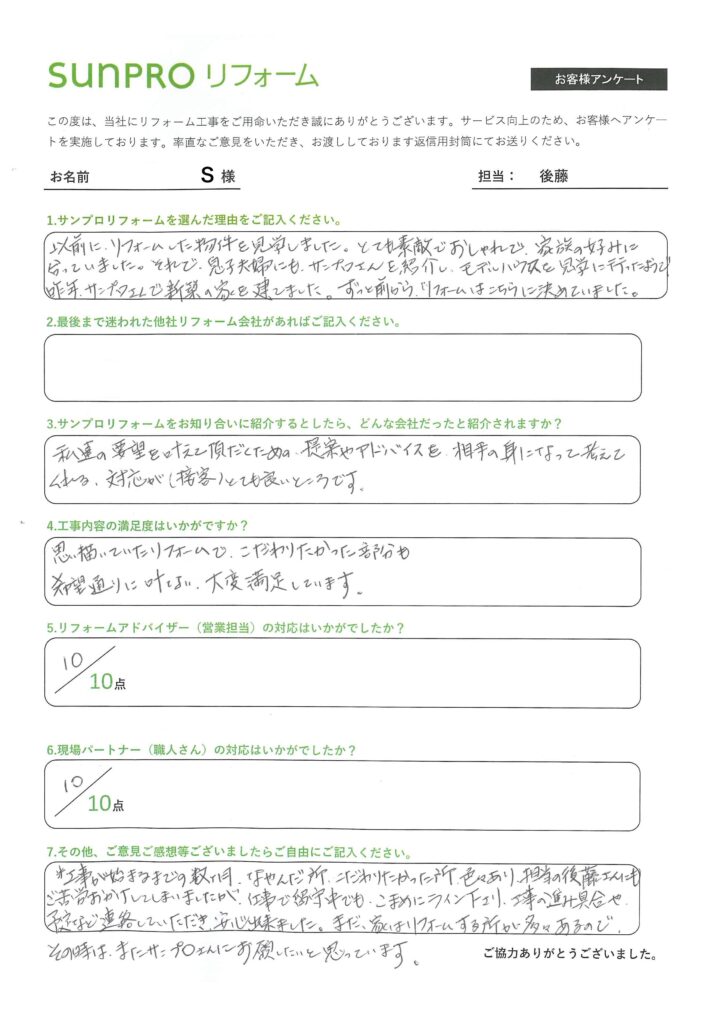 sunpro リフォーム
お客様アンケート
この度は、当社にリフォーム工事をご用命いただき誠にありがとうございます。サービス向上のため、お客様へアンケー
トを実施しております。率直なご意見をいただき、お渡ししております返信用封筒にてお送りください。
お名前 S 様
担当： 後藤
1.サンプロリフォームを選んだ理由をご記入ください。
以前に、リフォームした物件を見学しました。とても素敵でおしゃれで、家族の好みに
合っていました。それで、息子夫婦にも、サンプロさんを紹介し、モデルハウスを見学に行ったようで
昨年、サンプロさんで新築の家を建てました。ずっと前から、リフォームはこちらに決めていました。
2.最後まで迷われた他社リフォーム会社があればご記入ください。
3.サンプロリフォームをお知り合いに紹介するとしたら、どんな会社だったと紹介されますか？
私達の要望を叶えて頂だくための、提案やアドバイスを、相手の身になって考えて
くれる、対応が(接客)とても良いところです。
4.工事内容の満足度はいかがですか？
思い描いていたリフォームで、こだわりたかった部分も
希望通りに叶い、大変満足しています。
5.リフォームアドバイザー（営業担当）の対応はいかがでしたか？
10
10点
6.現場パートナー（職人さん）の対応はいかがでしたか？
10
10点
7.その他、ご意見ご感想等ございましたらご自由にご記入ください。
工事が始まるまでの数ヶ月、なやんだ所、こだわりたかった所、色々あり、担当の後藤さんにも
ご苦労おかけしてしまいましたが、仕事で留守中でも、こまめにライン下さり、工事の進み具合や、
予定など連絡していただき、安心出来ました。まだ、家はリフォームする所が多々あるので、
その時は、またサンプロさんにお願いしたいと思っています。
ご協力ありがとうございました。